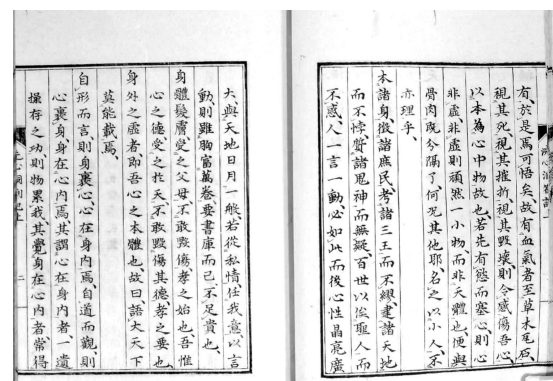 有、於是焉可悟矣、故有血氣者至草木瓦石、
視其死、視其摧折、視其毀壞則令感傷吾心、
以本為心中物故也、若先有慾而塞心則心
非虛、非虛則頑然一小物而非天體也、便與
骨肉既分隔了、何況其他耶、名之以小人、不
亦理乎、
本諸身、徵諸庶民、考諸三王而不繆、建諸天地
而不悖、質諸鬼神而無疑、百世以俟聖人而
不惑、人一言一動、必如此而後心性晶亮廣
大與天地日月一般、若從私情、任我意以言
動、則雖胸富萬卷、要書庫而已、不足貴也、
身體髮膚受之父母、不敢毀傷、孝之始也、吾惟
心之德受之於天、不敢毀傷其德、孝之要也、
身外之虛者、即吾心之本體也、故曰、語大天下
莫能載焉、
自形而言則身裹心、心在身内焉、自道而觀則
心裹身、身在心内焉、其謂心在身内者、一遺
操存之功則物累我、其覺身在心内者、常得
二